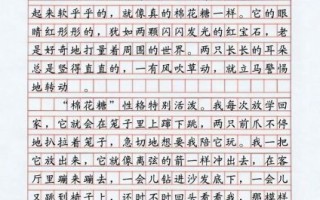 起来软乎乎的，就像真的棉花糖一样。它的眼
睛红彤彤的，犹如两颗闪闪发光的红宝石，老
是好奇地打量着周围的世界。两只长长的耳朵
总是竖得直直的，一有风吹草动，就立马警惕
地转动。
“棉花糖”性格特别活泼。我每次放学回
家，它就会在笼子里上蹿下跳，两只前爪不停
地扒拉着笼子，急切地想要我陪它玩。我一把
它放出来，它就像离弦的箭一样冲出去，在客
厅里蹦来蹦去，一会儿钻进沙发底下，一会儿
又跑到阳台上，还时不时回头看看我，那模样